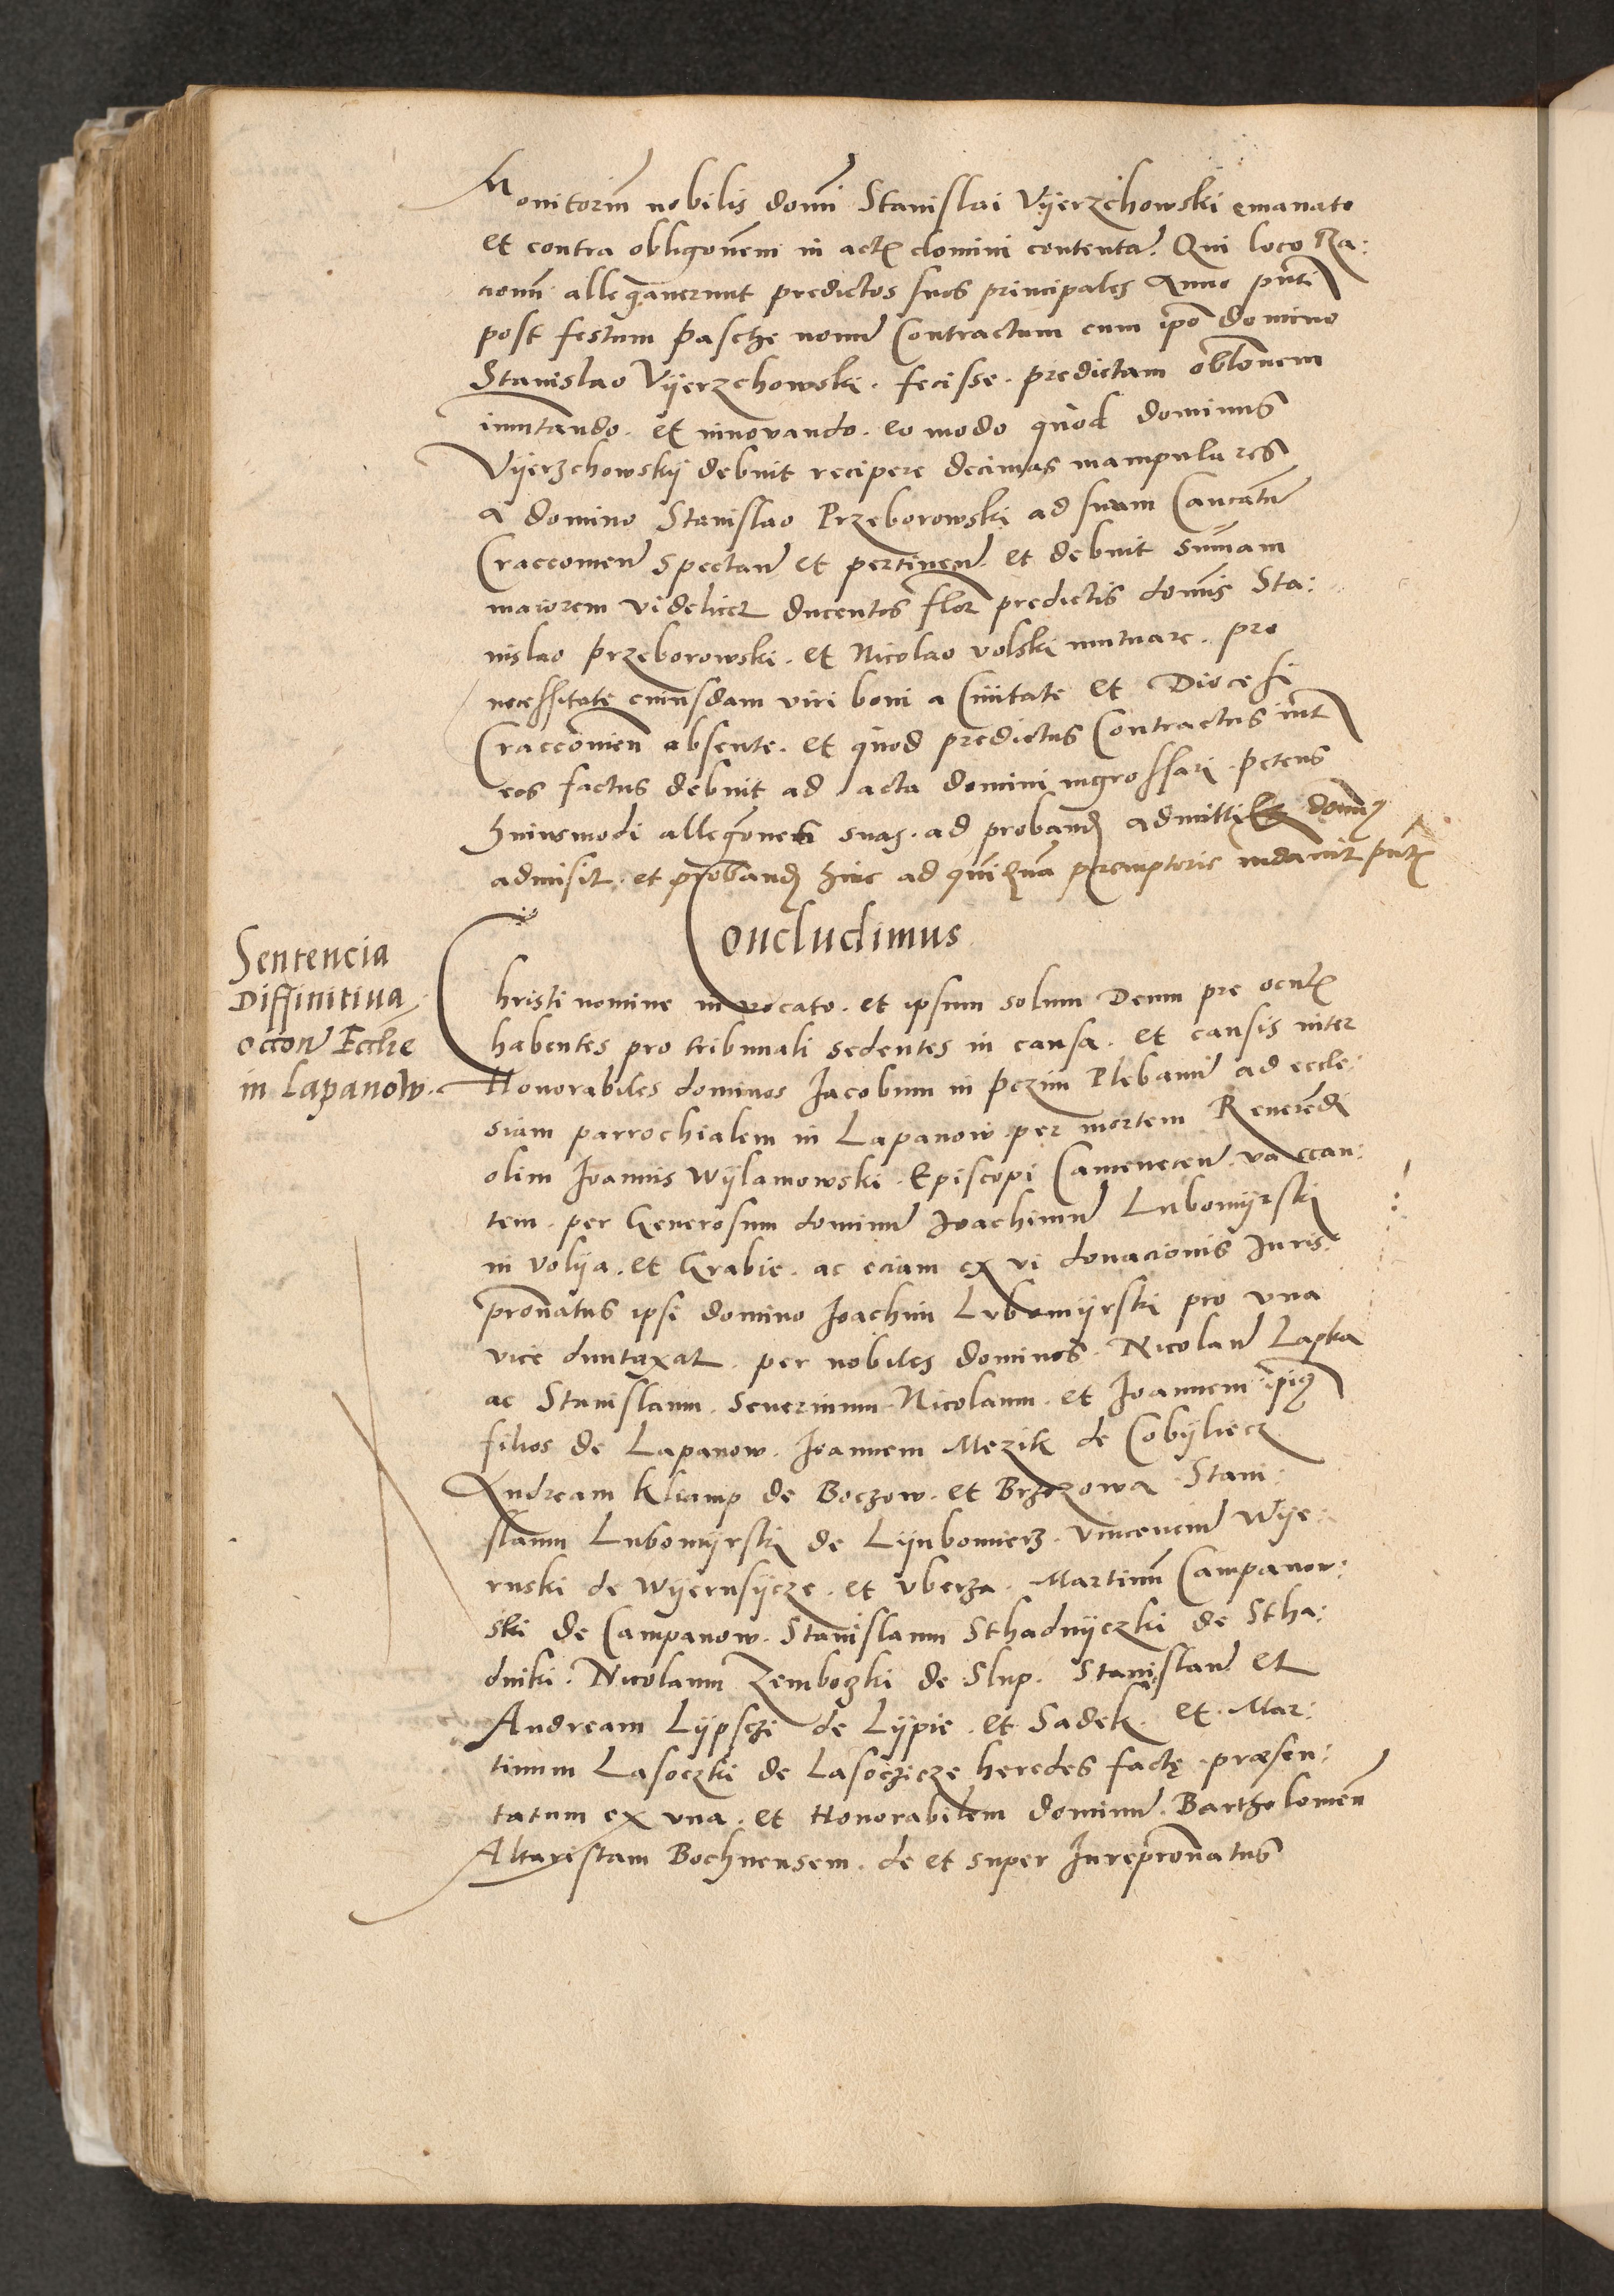 Monitorium nobilis domni Stanislai Vyerzchowski emanato
et contra obligonem in actis domini contentam. Qui loco Ra:
cionum allegauerunt predictos suos principales Anno pnti
post festum pasche nouum Contractum cum ipo domino
Stanislao Vyerzchowski. fecisse. predictam oblonem
inmutando. et innouando. eo modo quod dominus
Vyerzchowsky debuit recipere decimas manipulares
a domino Stanislao Przeborowski ad suam Cancatum
Craccouien spectan et pertinen et debuit summam
maiorem videlicet ducentos flor predictis domnis Sta:
nislao przeborowski. et Nicolao volski mutuare. pro
necessitate cuiusdam viri boni a Ciuitate et Diocesi
Craccouien absente. et quod predictus Contractus int
eos factus debuit ad acta domini ingrossari. petens
huiusmodi allegones suas. ad proband admitti Et domnus
admisit. et proband hinc ad quindenam peremptorie indauit pntis
Concludimus
Sentencia
Diffinitiua
occon Ecclie
in Lapanow.
Christi nomine inuocato. et ipsum solum Deum pre oculis
habentes pro tribunali sedentes in causa. et causis inter
Honorabiles dominos Jacobum in pczim Plebanum ad eccle:
siam parrochialem in Lapanow per mortem Reuerendi
olim Joannis Wylamowski. Episcopi Camenecen. vaccan:
tem. per Generosum dominum Joachimum Lubomyrski
in volya. et Grabie. ac eciam ex vi donacionis Juris
pronatus ipsi domino Joachim Lubomyrski pro vna
vice duntaxat. per nobiles dominos. Nicolaum Lapka
ac Stanislaum. Seuerinum Nicolaum. et Joannem ipius
filios de Lapanow. Joannem Mezik de Cobyliecz
Andream Kliamp de Boczow. et Brzezowa. Stani:
slaum Lubomyrski de Lyubomierz. Vincencium Wye:
ruski de Wyerusycze. et Vberza. Martinum Campanow:
ski de Campanow. Stanislaum Sthadnyczki de Stha:
dniki. Nicolaum Zemboczki de Slup. Stanislaum et
Andream Lypschi de Lypie. et Sadek. et. Mar:
tinum Lasoczki de Lasoczicze heredes factę præsen:
tatum ex vna. et Honorabilem dominum. Bartholomeum
Altaristam Bochnensem. de et super Jurepronatus